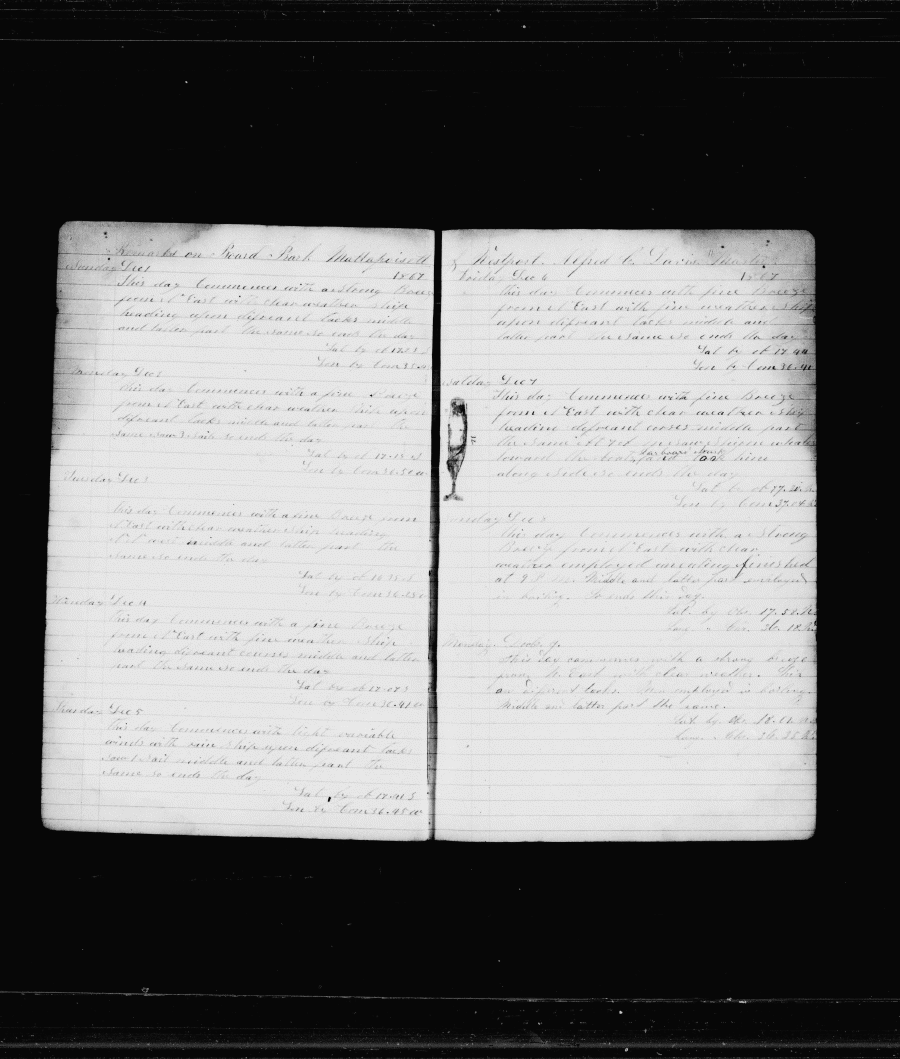 Remarks on Board Bark Mattapoisett
Sunday Dec 1 1867
This day Commences with a Strong Breeze
from N East with clear weather Ship
heading upon difreant tacks middle
and latter part the same so ends the day
Lat by ob 17.23
Lon by Crom 35.
Dec 2
this day Commences with a fine Breeze
from N East with clear weather Ship upon
difreant tacks middle and latter part the
same saw 1 sail so ends the day
Lat by ob 17.17 S
Lon by Crom 36.30.00
Tuesday Dec 3
this day Commences with a fine Breeze from
N East with clear weather Ship heading
N N west middle and latter part the
same so ends the day
Lat by ob 16.35 S
Lon by Crom 36.25.00
Dec 4
this day Commences with a fine Breeze
from N East with fine weather Ship
heading difreant courses middle and latter
part the same so ends the day
Lat by ob 17.07 S
Lon by Crom 36.41.00
Thursday Dec 5
this day Commences with light variable
winds with rain Ship upon difreant tacks
saw 1 sail middle and latter part the
same so ends the day
Lat by ob 17.41 S
Lon by Crom 36.45.00
of Westport. Alfred C. Davis Master
Friday Dec 6 1867
this day Commences with fine Breeze
from N East with fine weather Ship
upon difreant tacks middle and
latter part the same so ends the day
Lat by ob 17.44
Lon by Crom 36.41
Saturday Dec 7
this day Commences with fine Breeze
from N East with clear weather Ship
heading difreant courses middle part
the same At saw Sperm whales
lowerd the boats
took him
along side so ends the day
Lat by ob 17.28
Lon by Crom 37.04
Dec 8
this day Commences with a Strong
Breeze from N East with clear
weather employed in cuting finished
at 9 P.M. Middle and latter part employed
in boiling. So ends this day.
Lat. by Obs. 17.50
Long " Cro. 36.18
Monday. Dec. 9.
This day commences with a strong breeze
from N. East with clear weather. Ship
on different tacks. Men employed in boiling.
Middle and latter part the same.
Lat. by Obs. 18.01
Long. " Chr. 36.25